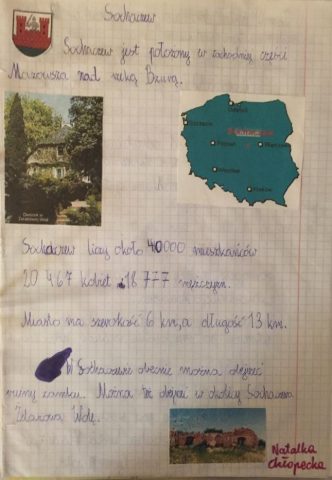 Sochaczew
Sochaczew jest położony w zachodniej części
Mazowsza nad rzeką Bzurą.
Domek w
Żelazowej Woli
Gdańsk
Szczecin
Sochaczew
Poznań
Warszawa
Wrocław
Kraków
Sochaczew liczy około 40000 mieszkańców
20 467 kobiet i 18 777 mężczyzn.
Miasto ma szerokość 6 km, a długość 13 km.
W Sochaczewie obecnie można obejrzeć
ruiny zamku. Można też
w okolicy Sochaczewa
Wolę.
Natalka
Chłopecka